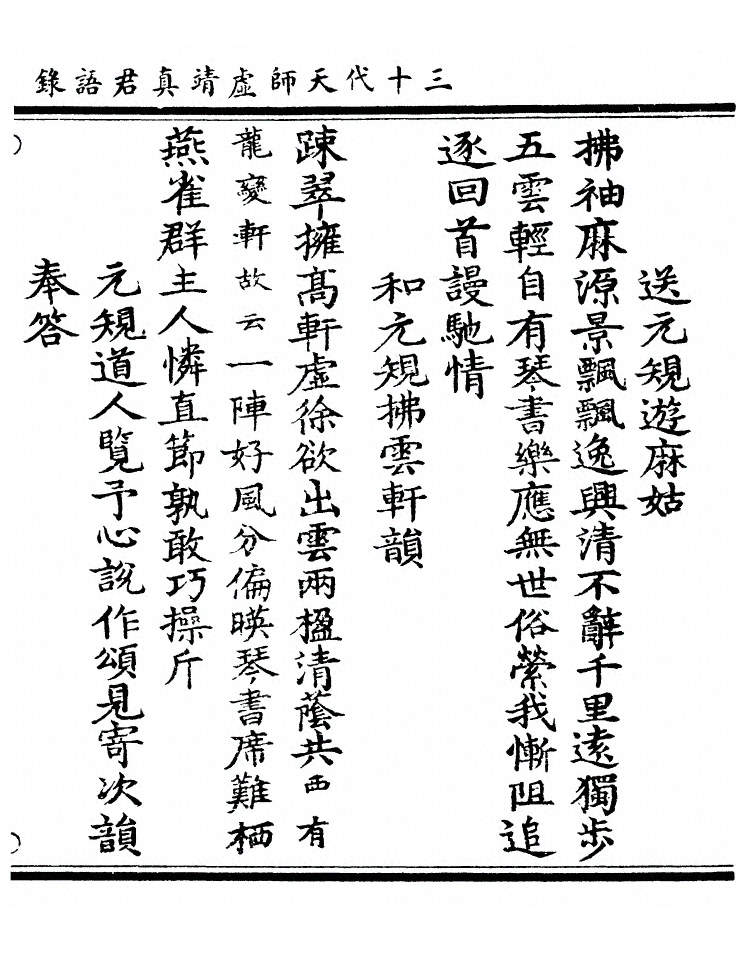 三十代天師虛靖真君語錄
送元規遊麻姑
拂袖麻源景飄飄逸興清不辭千里遠獨步
五雲輕自有琴書樂應無世俗縈我慚阻追
逐回首謾馳情
和元規拂雲軒韻
疎翠擁髙軒虛徐欲出雲兩楹清蔭共西有
龍變軒故云一陣好風分偏暎琴書席難栖
燕雀群主人憐直節孰敢巧操斤
元規道人覽予心說作頌見寄次韻
奉答